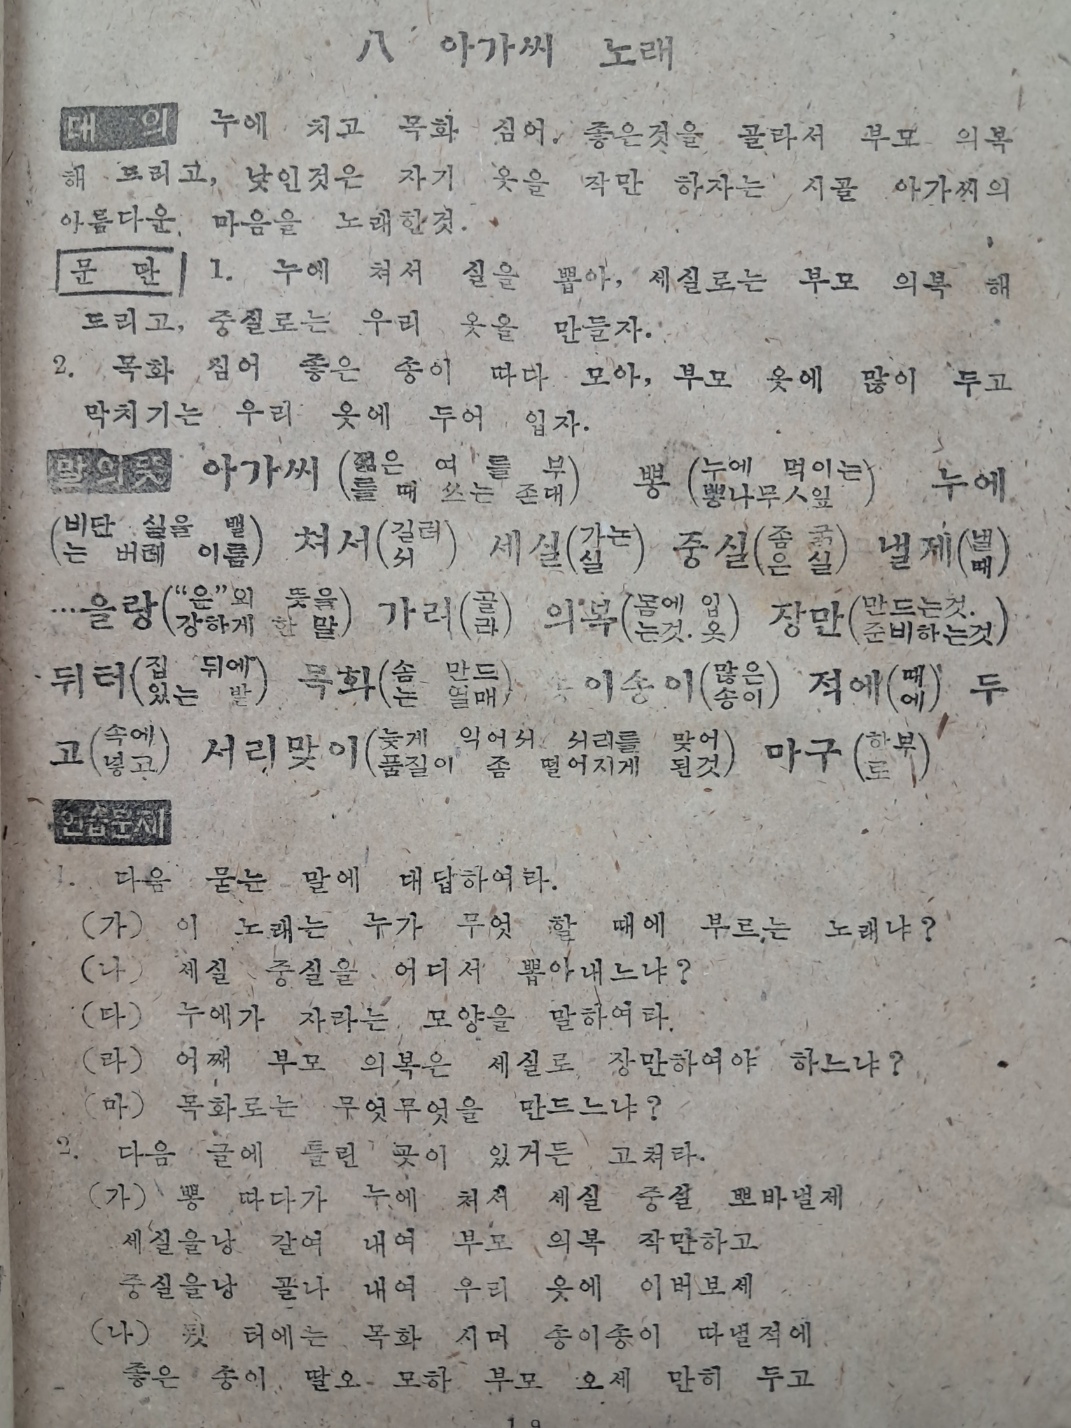 八 아가씨 노래
대 의 누에 치고 목화 심어, 좋은것을 골라서 부모 의복
해 드리고, 낮인것은 자기 옷을 작만 하자는 시골 아가씨의
아름다운 마음을 노래한것.
문 단 1. 누에 쳐서 실을 뽑아, 세실로는 부모 의복 해
드리고, 중실로는 우리 옷을 만들자.
2. 목화 심어 좋은 송이 따다 모아, 부모 옷에 많이 두고
막치기는 우리 옷에 두어 입자.
말의뜻 아가씨 (젊은 여 를 부를 때 쓰는 존대) 뽕 (누에 먹이는 뽕나무ㅅ잎) 누에
(비단 실을 뺄는 버레 이름) 쳐서(길러서) 세실(가는실) 중실(좀 굵은 실) 낼제(낼때)
…을랑(“은”의 뜻을 강하게 한 말) 가려(골라) 의복(몸에 입는것. 옷) 장만(만드는것. 준비하는것)
뒤터(집 뒤에 있는 밭) 목화(솜 만드는 열매) 이송이(많은 송이) 적에(때에) 두
고(속에 넣고) 서리맞이(늦게 익어서 서리를 맞어 품질이 좀 떨어지게 된것) 마구(하부로)
연습문제
1. 다음 묻는 말에 대답하여라.
(가) 이 노래는 누가 무엇 할 때에 부르는 노래냐?
(나) 세실 중실을 어디서 뽑아내느냐?
(다) 누에가 자라는 모양을 말하여라.
(라) 어째 부모 의복은 세실로 장만하여야 하느냐?
(마) 목화로는 무엇무엇을 만드느냐?
2. 다음 글에 틀린 곳이 있거든 고쳐라.
(가) 뽕 따다가 누에 처서 세실 중실 뽀바낼제
세실을낭 갈여 내여 부모 의복 작만하고
중실을낭 골나 내여 우리 옷에 이버보세
(나) 뒷 터에는 목화 시머 송이송이 따낼적에
좋은 송이 딸오 모하 부모 오세 만히 두고
19